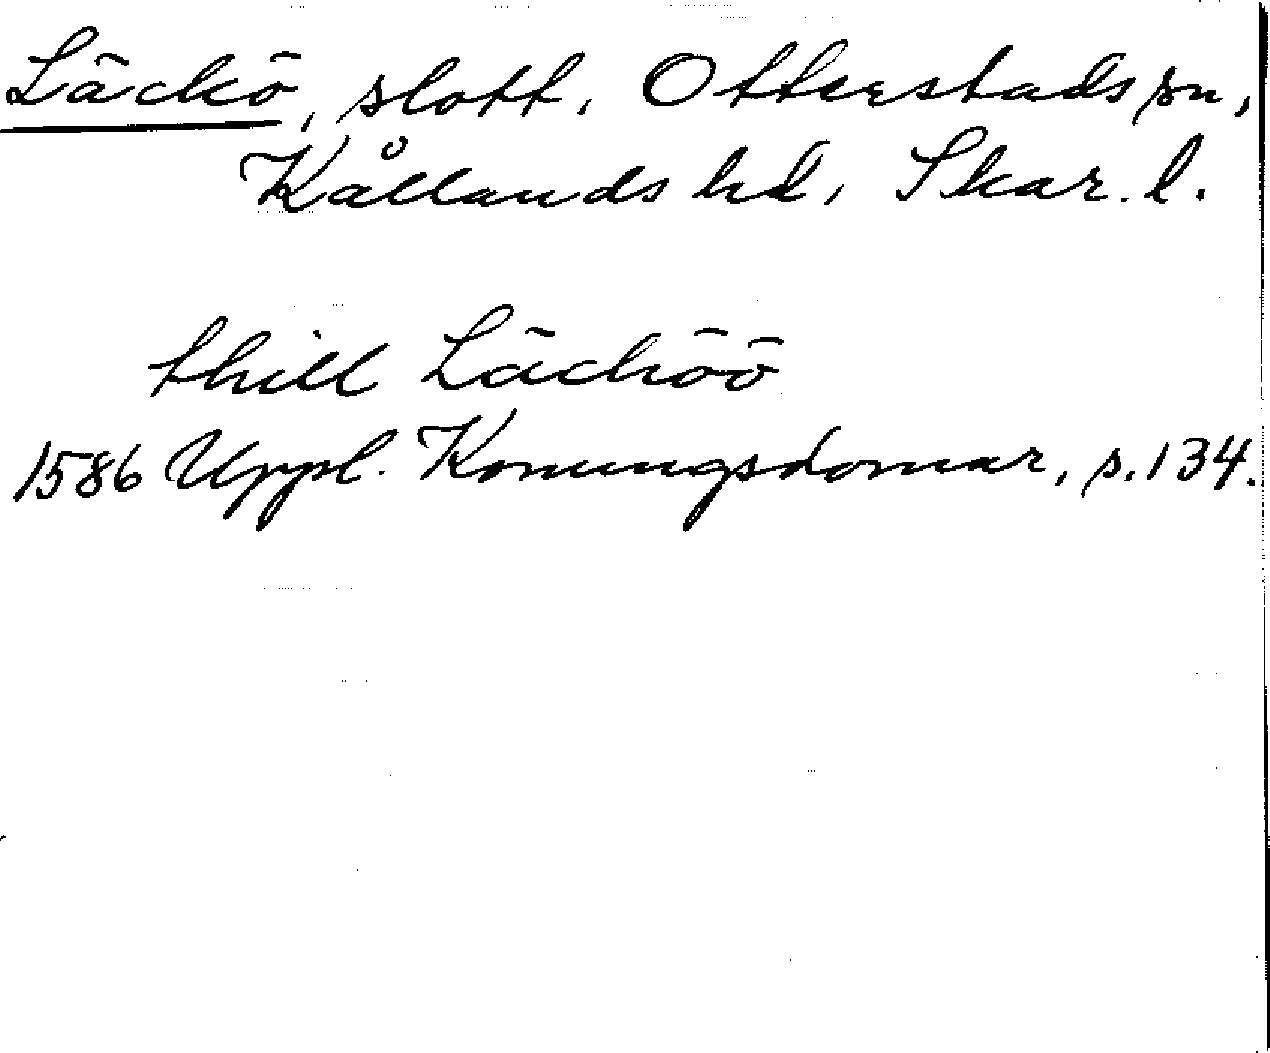 Läckö, slott, Otterstads sn,
Kållands hd, Skar. l.
thill Läcköö
1586 Uppl. Konungsdomar, s. 134.